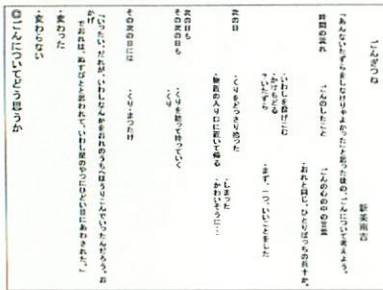 ごんぎつね
新美南吉
「あんないたずらをしなけりゃよかった」と思った後の、ごんについて考えよう。
時間の流れ
ごんのしたこと
ごんの心の中の言葉
・おれと同じ、ひとりぼっちの兵十か。
・いわしを投げこむ
・かけもどる
・いたずら
・まず、一つ、いいことをした
次の日
・くりをどっさり拾った
・物置の入り口に置いて帰る
・しまった
・かわいそうに…
次の日も
その次の日も
・くりを拾って持っていく
・くり
その次の日には
・くり・まつたけ
「いったい、だれが、いわしなんかをおれのうちへほうりこんでいったんだろう。おかげでおれは、ぬすびとと思われて、いわし屋のやつにひどい目にあわされた。」
・変わった
・変わらない
◎ごんについてどう思うか